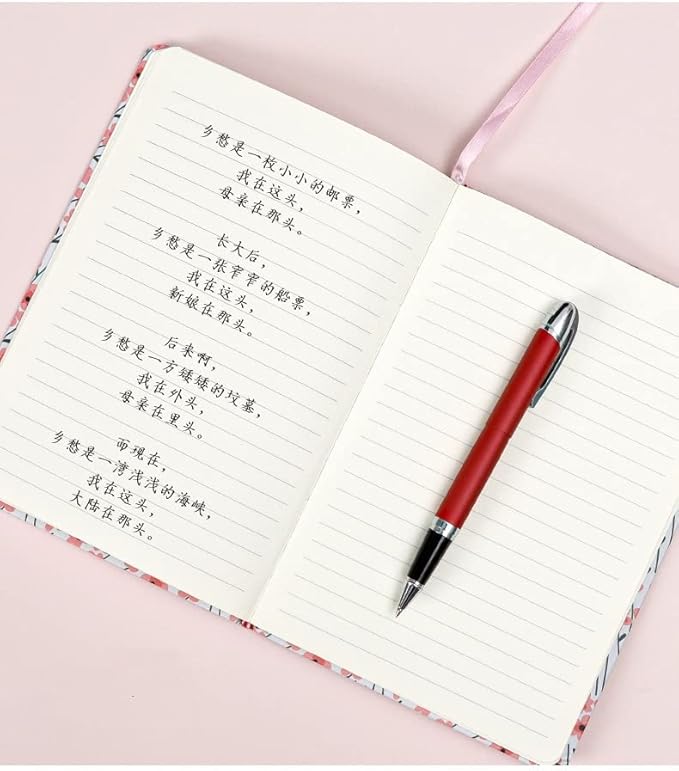 乡愁是一枚小小的邮票，
我在这头，
母亲在那头。
长大后，
乡愁是一张窄窄的船票，
我在这头，
新娘在那头。
后来啊，
乡愁是一方矮矮的坟墓，
我在外头，
母亲在里头。
而现在，
乡愁是一湾浅浅的海峡，
我在这头，
大陆在那头。